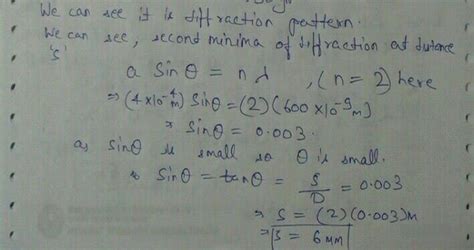 We can see it is diffraction pattern.
We can see, second minima of diffraction at distance
's'
a sinθ = nλ , (n = 2) here
⇒ (4×10⁻⁴m) sinθ = (2)(600×10⁻⁹m)
⇒ sinθ = 0.003.
as sinθ is small so θ is small.
so sinθ = tanθ = s/D = 0.003
⇒ s = (2)(0.003)m
⇒ s = 6mm